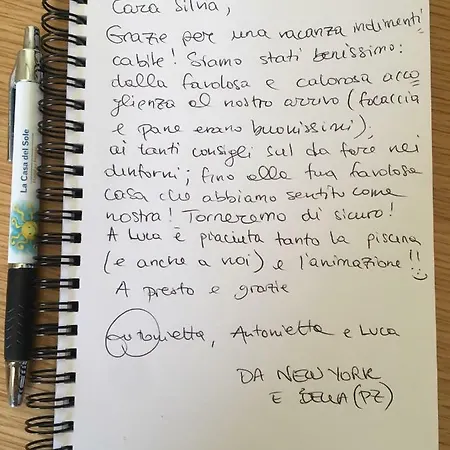 Cara Silvia,
Grazie per una vacanza indimenti
cabile! Siamo stati benissimo:
dalla favolosa e calorosa acco
glienza al nostro arrivo (focaccia
e pane erano buonissimi),
ai tanti consigli sul da fare nei
dintorni; fino alla tua favolosa
casa che abbiamo sentito come
nostra! Torneremo di sicuro!
A Luca è piaciuta tanto la piscina
(e anche a noi) e l'animazione!!
A presto e grazie
Antonietta, Antonietta e Luca
DA NEW YORK
E BELLA (PZ)
La Casa del Sole